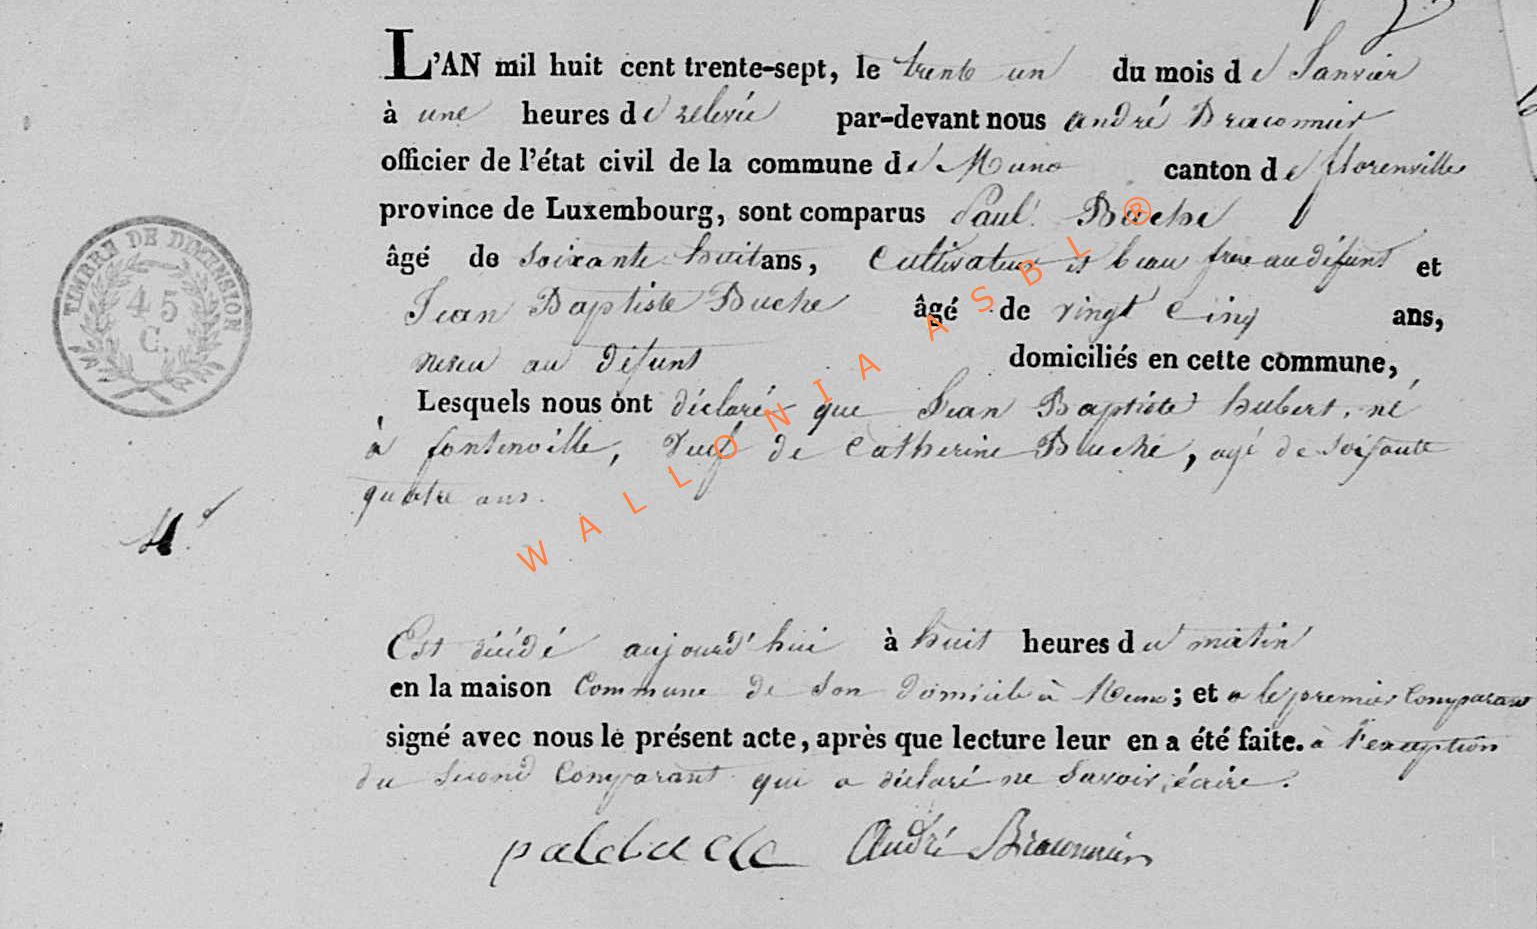 L'AN mil huit cent trente-sept, le trente un du mois de Janvier
à une heures de relevée par-devant nous andré Braconnier
officier de l'état civil de la commune de Muno canton de florenville
province de Luxembourg, sont comparus Paul Buche
âgé de soixante huit ans, Cultivateur et beau frere au défunt et
Jean Baptiste Buche âgé de vingt Cinq ans,
neveu au défunt domiciliés en cette commune,
Lesquels nous ont déclaré que Jean Baptiste hubert, né
à fontenoille, veuf de Catherine Buche, agé de soisante
quatre ans.
TIMBRE DE DIMENSION
45
C.
Est décédé aujourd'hui à huit heures du matin
en la maison Commune de son domicile à Muno; et a le premier Comparant
signé avec nous le présent acte, après que lecture leur en a été faite. à l'exception
du second Comparant qui a déclaré ne savoir écrire.
André Braconnier
WALLONIA ASBL ®